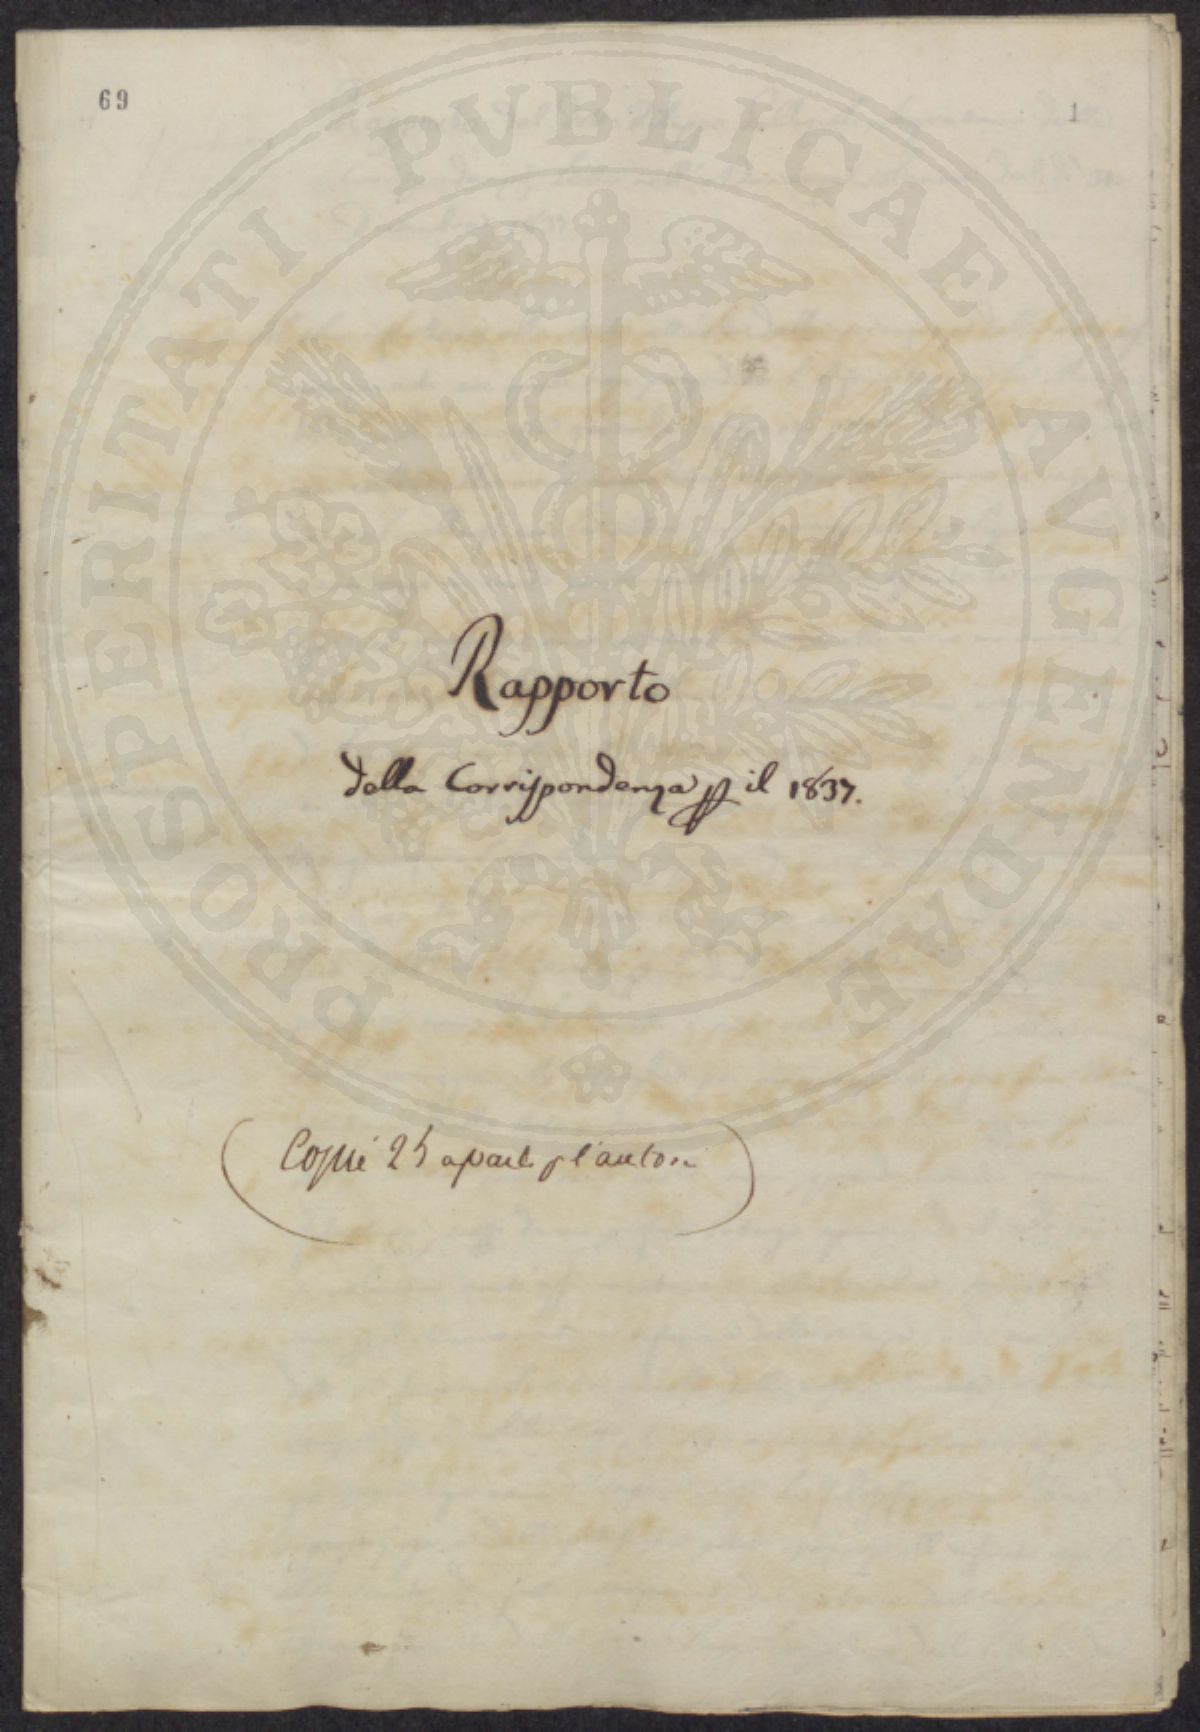 69
1
PROSPERITATI PVBLICAE AVGENDAE
Rapporto
della Corrispondenza p il 1837.
Copié 25 apart p l'auton